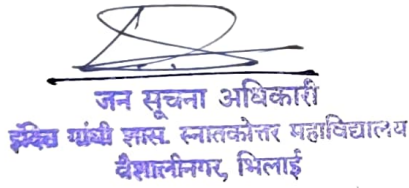 जन सूचना अधिकारी
इंदिरा गांधी शास. स्नातकोत्तर महाविद्यालय
वैशालीनगर, भिलाई